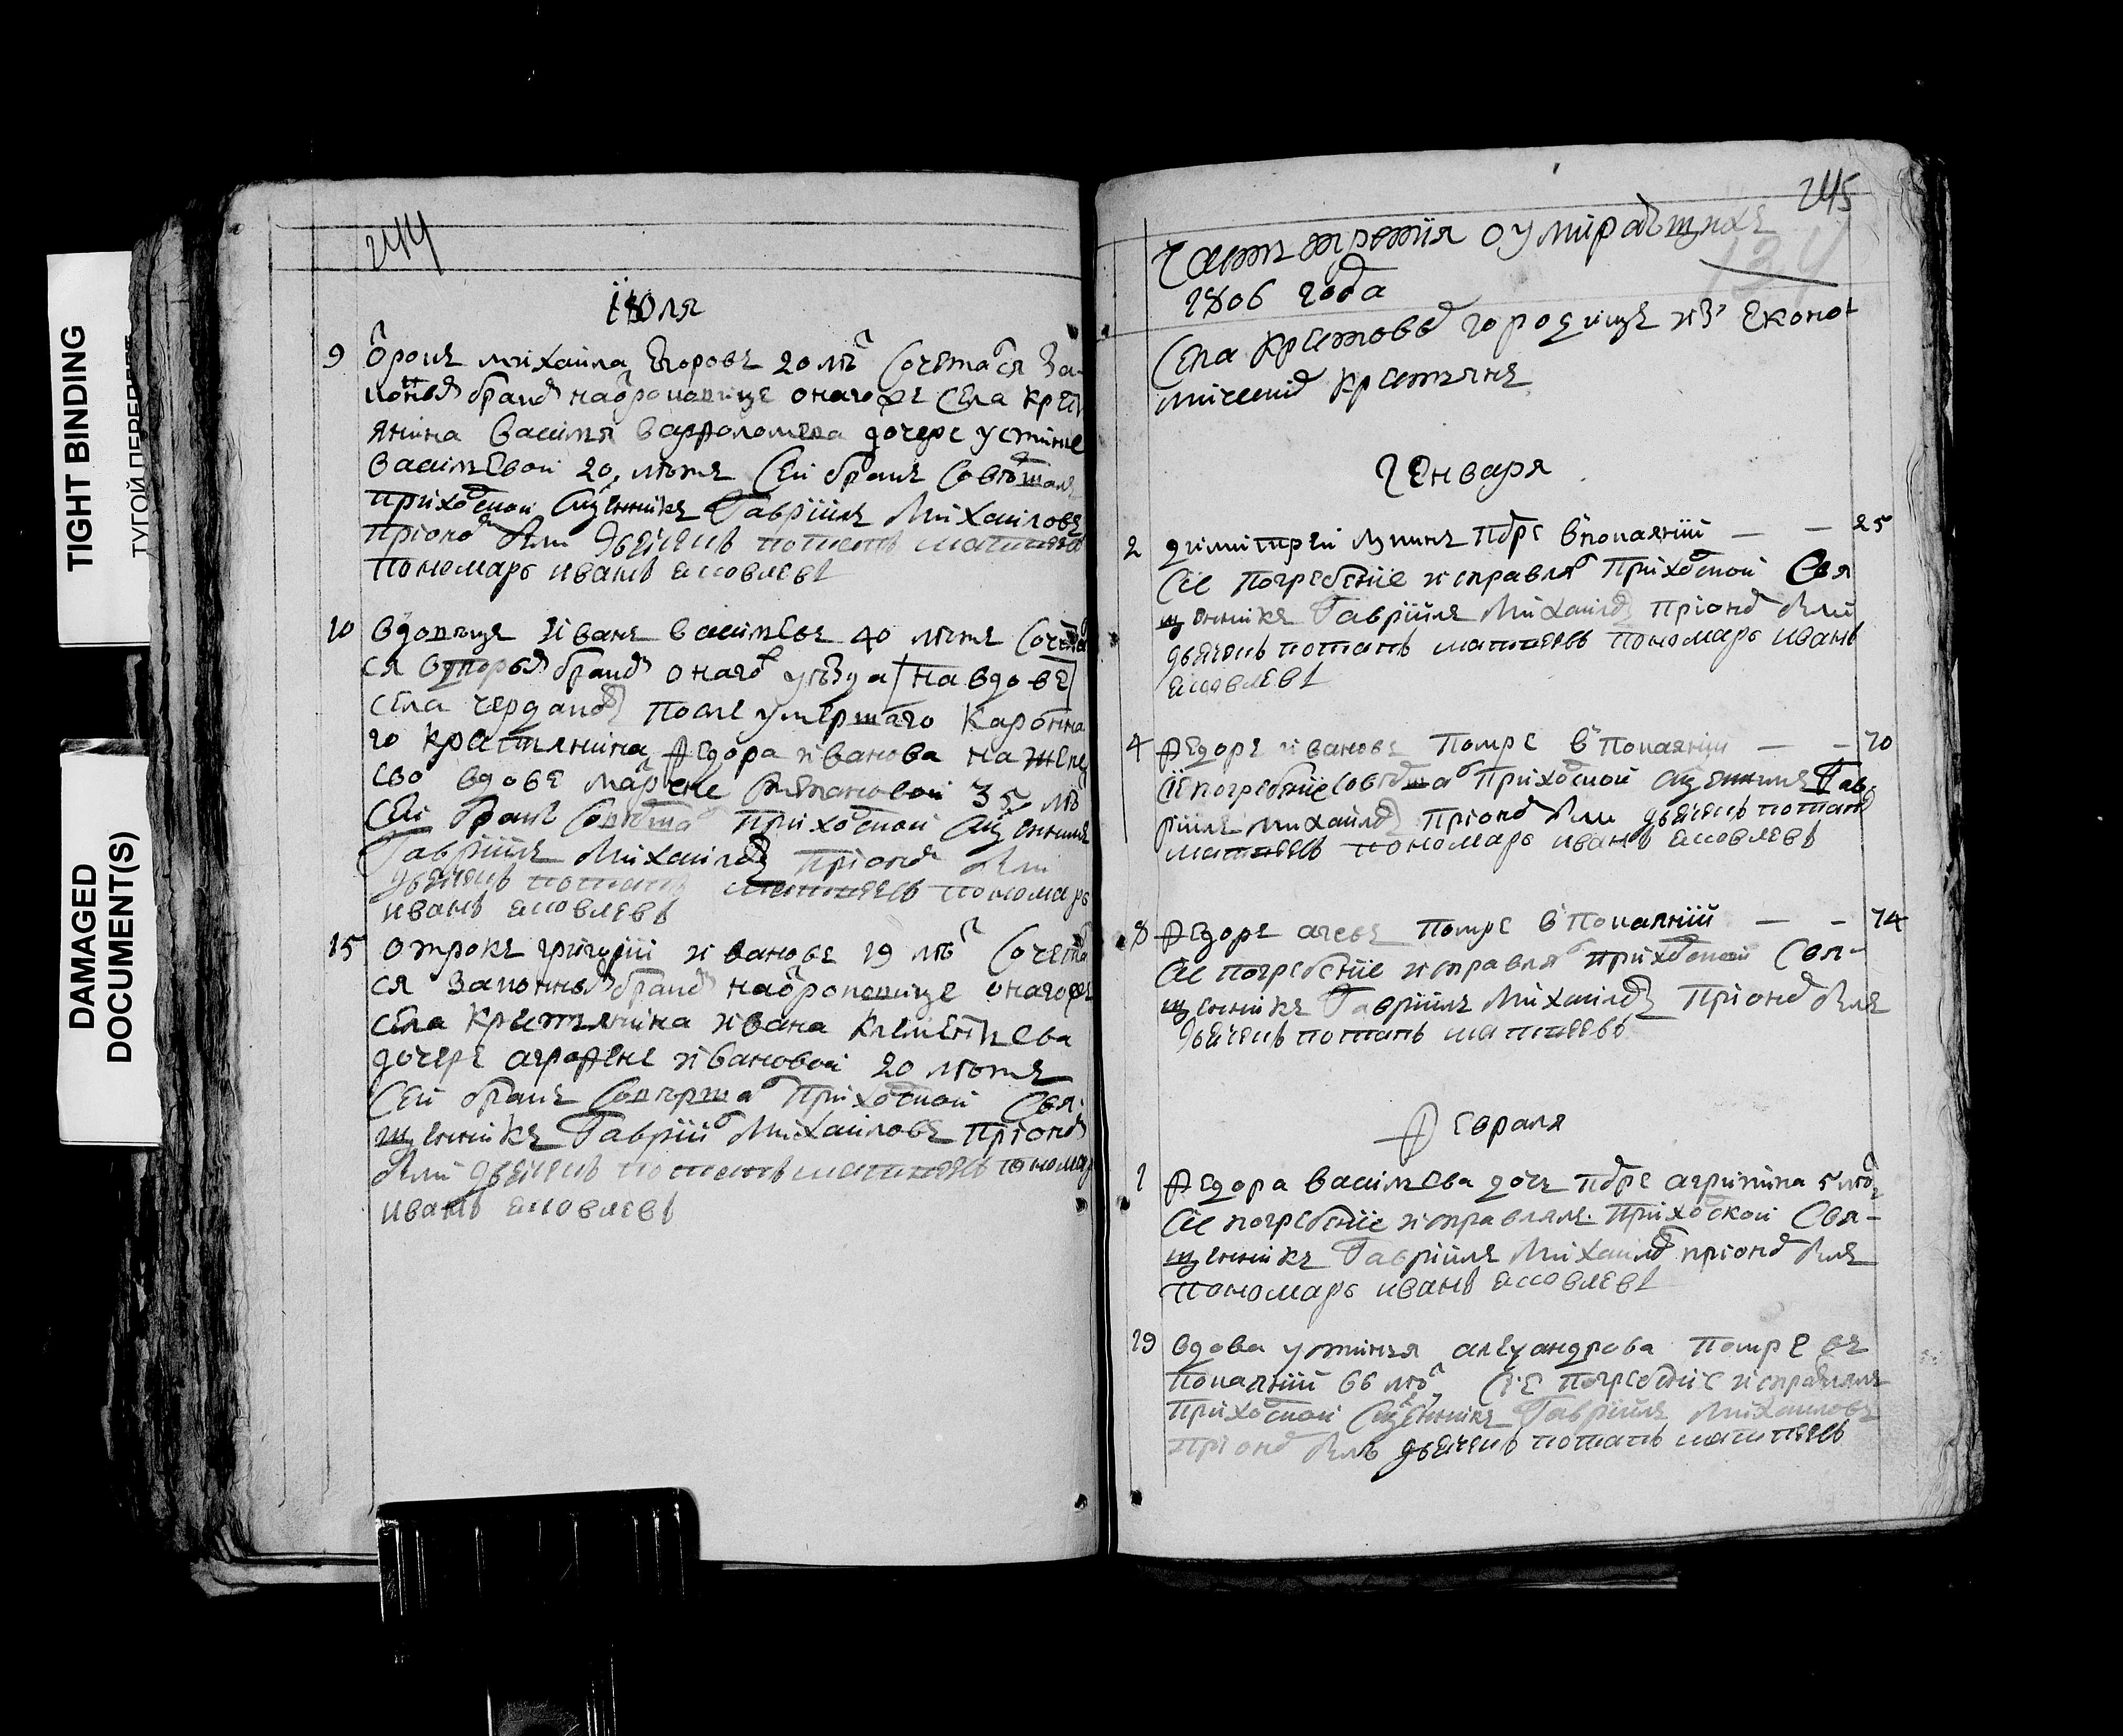 TIGHT BINDING
ТУГОЙ ПЕРЕПЛЕТ
DAMAGED
DOCUMENT(S)
244
Июля
9 Отрокъ михаила Егоровъ 20 лѣт Сочетался За
конны бракъ на отроковице онагоже Села крестъ
янина Василья варфоломеева дочере устинье
васильевой 20 летъ Сей бракъ Совѣршалъ
приходской Сщенникъ Гаврiилъ Михаиловъ
приономъ были Дьячекъ потапъ матвеевъ
Пономарь иванъ яковлевъ
10 вдовецъ иванъ васильевъ 40 летъ Сочета
ся вторы бракъ онаго уезда на вдове
Села после умершаго
го крестьянина федора иванова на жене
ево вдове марфе Степановой 35 лѣ
Сей бракъ Совѣрша приходской Сщенникъ
Гаврiилъ Михаиловъ приономъ были
дьячекъ потапъ матвеевъ пономарь
иванъ яковлевъ
15 отрокъ григорiй ивановъ 19 лѣт Сочета
ся Законны бракъ на отроковице онагоже
села крестьянина ивана клементьева
дочере аграфене ивановой 20 летъ
Сей бракъ Совѣрша Приходской Свя
щенникъ Гаврiил Михаиловъ приономъ
были дьячекъ потапъ матвеевъ пономар
иванъ яковлевъ
245
134
Часть третiя о умирающихъ
1806 года
Села городище из Еконо
мическихъ крестьянъ
Генваря
2 димитрей помре в покаянiи — — 25
Сiе погребенiе исправлял Приходской Свя
щенникъ Гаврiилъ Михаиловъ приономъ были
дьячекъ потапъ матвеевъ пономарь иванъ
яковлевъ
4 федоръ ивановъ Помре в Покаянiи — — 70
Сiе погребенiе Совѣрша Приходской Сщенникъ Гав
рiилъ Михаиловъ приономъ были дьячекъ потапъ
матвеевъ пономарь иванъ яковлевъ
8 федоръ Помре в Покаянiи — — 74
Сiе погребенiе исправлял приходской Свя-
щенникъ Гаврiилъ Михаиловъ Приономъ былъ
Дьячекъ потапъ матвеевъ
Февраля
1 федора васильева дочь помре агрипина 5 лѣт
Сiе погребенiе исправлялъ Приходской Свя-
щенникъ Гаврiилъ Михаиловъ приономъ былъ
пономарь иванъ яковлевъ
19 вдова устинья алеѯандрова Помре въ
покаянiи 66 лѣт Сiе погребенiе исправлялъ
Приходской Сщенникъ Гаврiилъ Михаиловъ
приономъ былъ дьячекъ потапъ матвеевъ